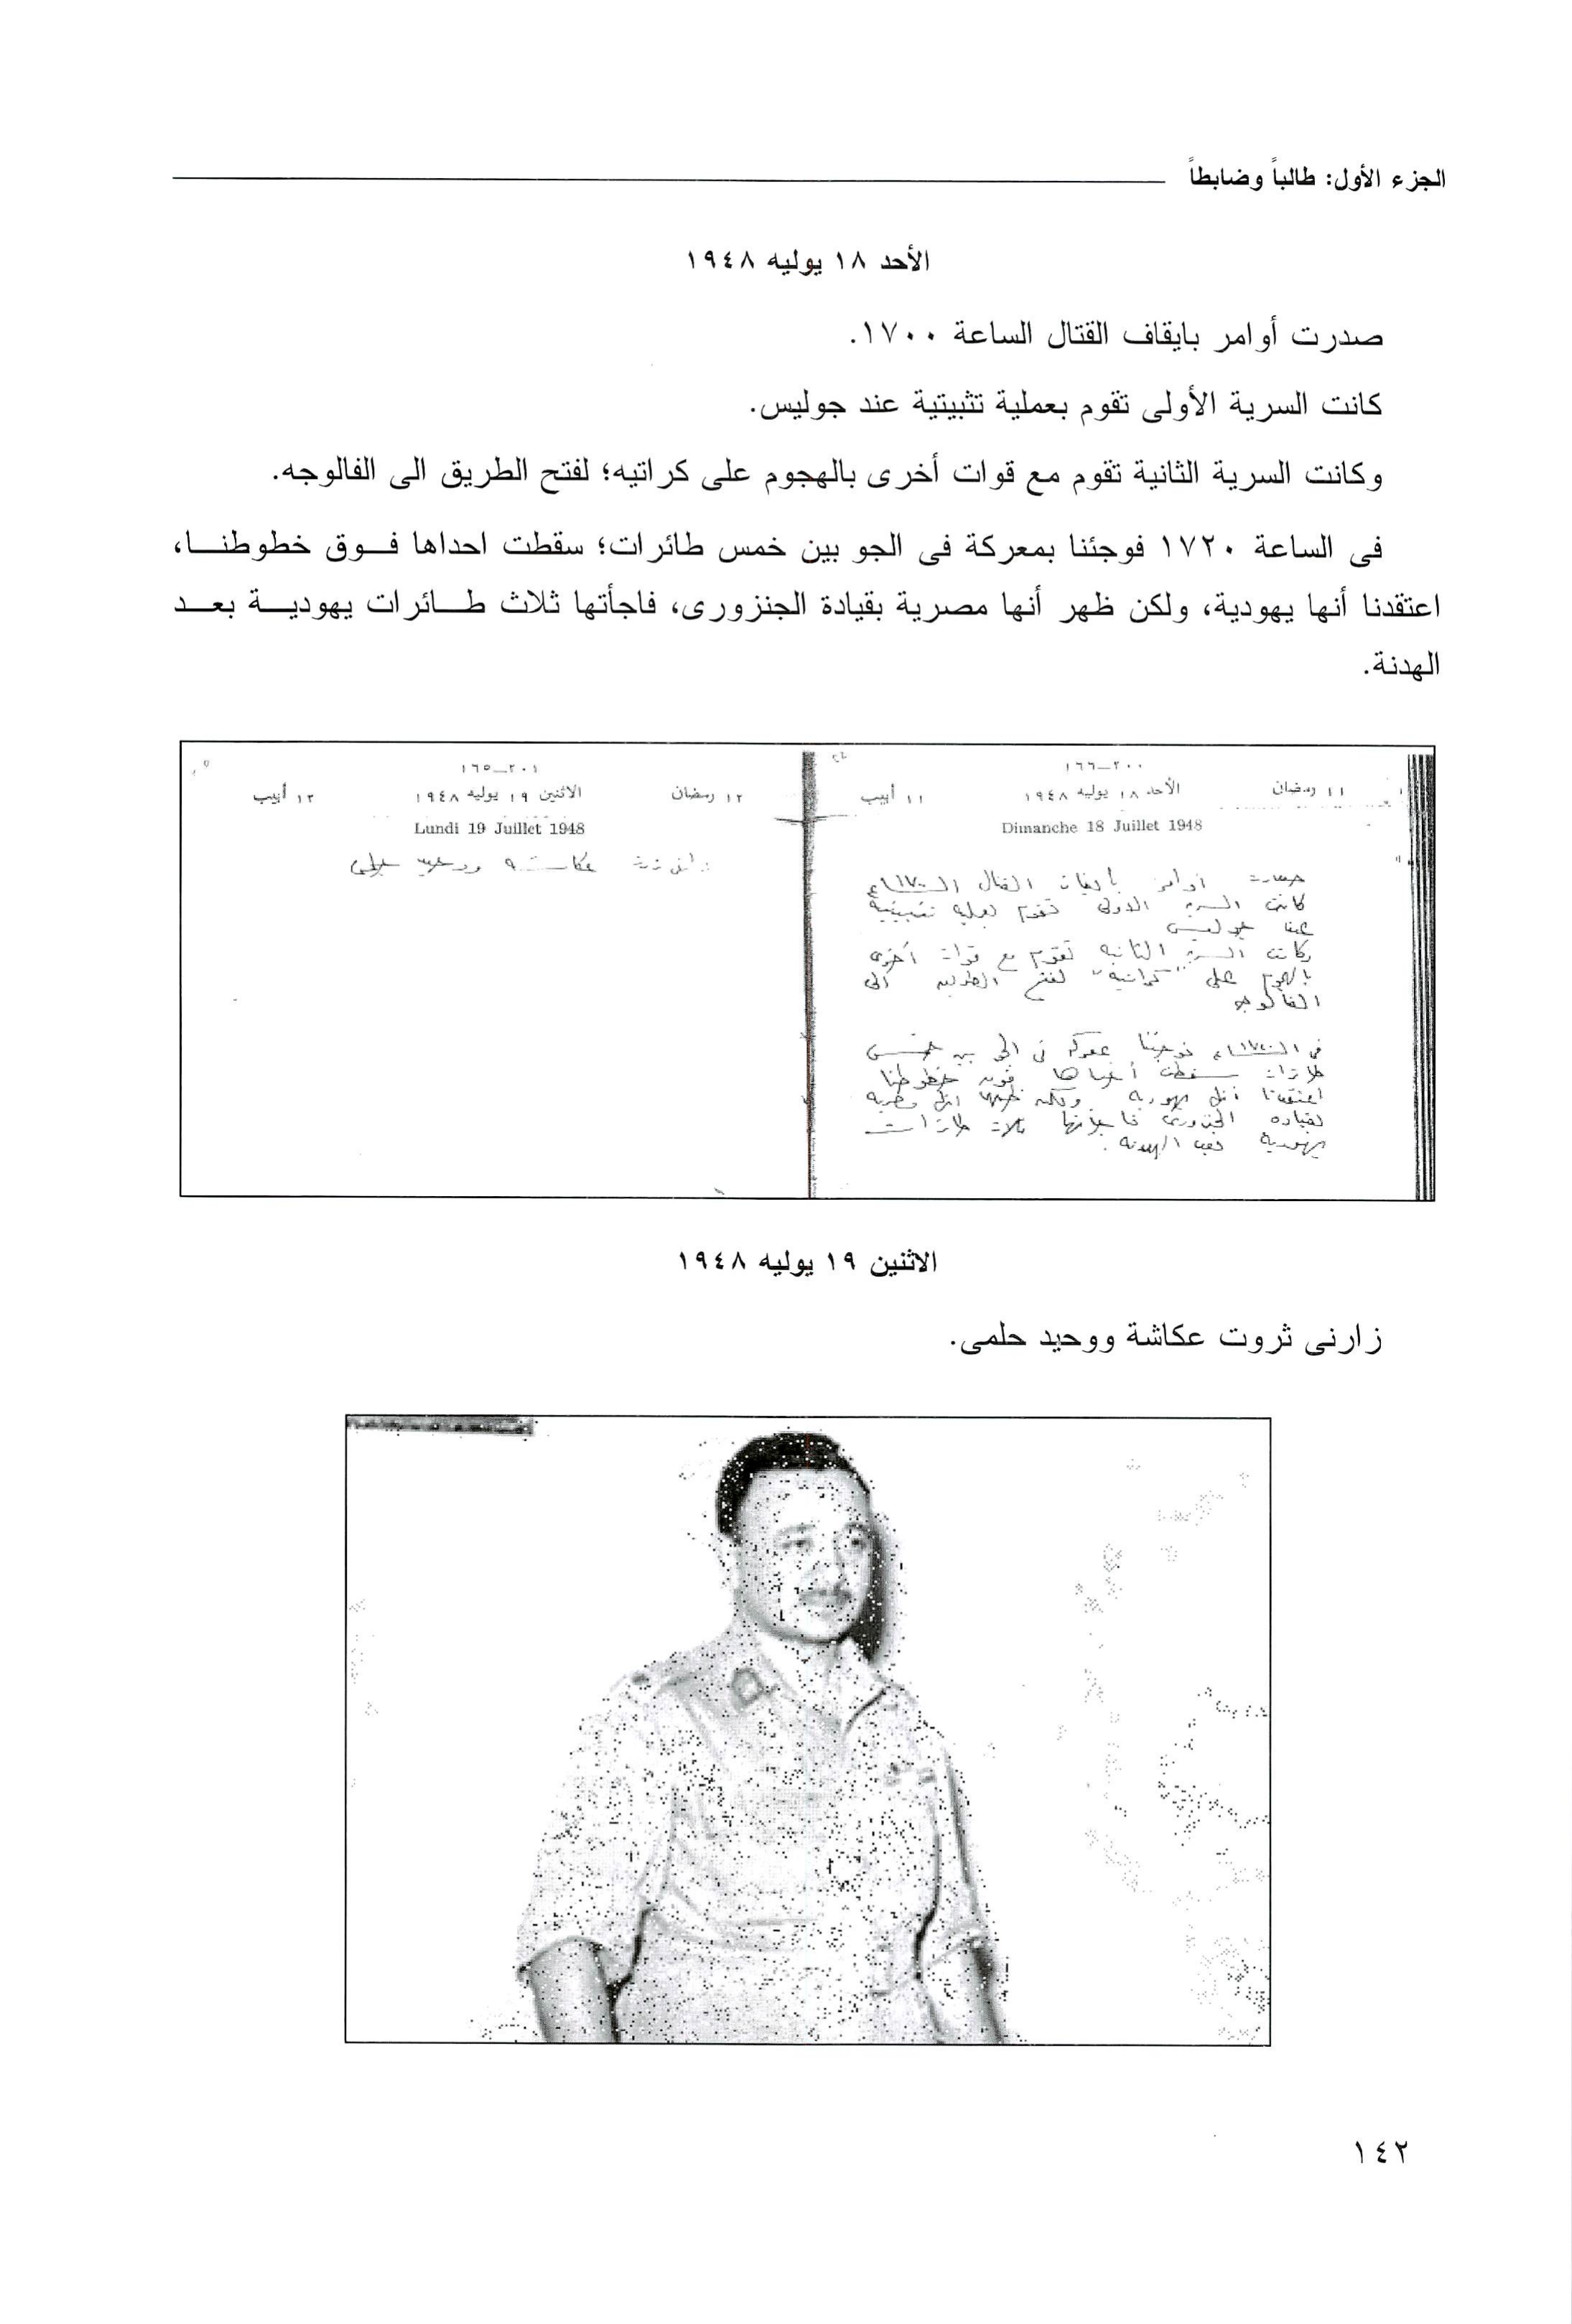 الجزء الأول: طالباً وضابطاً
الأحد ١٨ يوليه ١٩٤٨
صدرت أوامر بايقاف القتال الساعة ١٧٠٠.
كانت السرية الأولى تقوم بعملية تثبيتية عند جوليس.
وكانت السرية الثانية تقوم مع قوات أخرى بالهجوم على كراتيه؛ لفتح الطريق الى الفالوجه.
فى الساعة ١٧٢٠ فوجئنا بمعركة فى الجو بين خمس طائرات؛ سقطت احداها فوق خطوطنا،
اعتقدنا أنها يهودية، ولكن ظهر أنها مصرية بقيادة الجنزورى، فاجأتها ثلاث طائرات يهودية بعد
الهدنة.
٢٠٠-١٦٦
١١ رمضان الأحد ١٨ يوليه ١٩٤٨ ١١ أبيب
Dimanche 18 Juillet 1948
صدرت أوامر بايقاف القتال الساعة ١٧٠٠
كانت السرية الاولى تقوم بعملية تثبيتية
عند جوليس
وكانت السرية الثانية تقوم مع قوات أخرى
بالهجوم على "كراتية" لفتح الطريق الى
الفالوجه
فى الساعة ١٧٢٠ فوجئنا بمعركة فى الجو بين خمس
طائرات سقطت أحداها فوق خطوطنا
اعتقدنا أنها يهودية ولكن ظهر أنها مصرية
بقيادة الجنزورى فاجأتها ثلاث طائرات
يهودية بعد الهدنة.
٢٠١-١٦٥
١٢ رمضان الاثنين ١٩ يوليه ١٩٤٨ ١٢ أبيب
Lundi 19 Juillet 1948
زارنى ثروت عكاشة ووحيد حلمى
الاثنين ١٩ يوليه ١٩٤٨
زارنى ثروت عكاشة ووحيد حلمى.
١٤٢